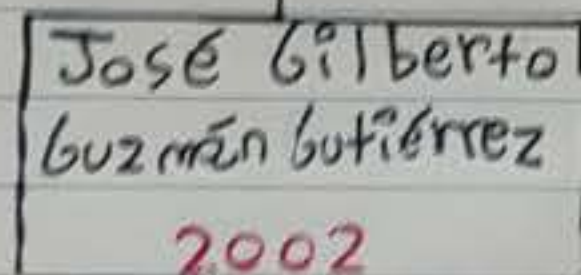 José Gilberto
Guzmán Gutiérrez
2002